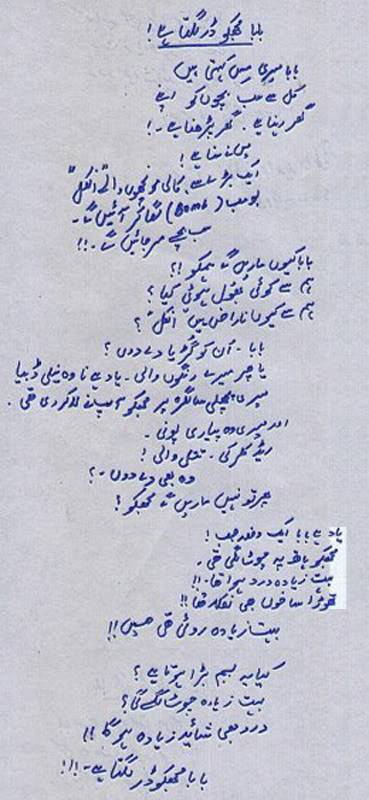 بابا مجھکو ڈر لگتا ہے!
بابا میری مِس کہتی ہیں
کل سے سب بچوں کو اپنے
گھر رہنا ہے۔ گھر پڑھنا ہے۔!
میں نے سنا ہے!
ایک بڑے سے کالی مونچھوں والے "انکل"
بومب (Bomb) لگا کر آئیں گے۔
سب بچے مر جائیں گے۔!!
بابا کیوں ماریں گے ہمکو!!؟
ہم سے کوئی بھول ہوئی کیا؟
ہم سے کیوں ناراض ہیں "انکل"؟
بابا۔ اُن کو گڑیا دے دوں؟
یا پھر میرے رنگوں والی۔ یاد ہے نا وہ نیلی ڈبیا
میری پچھلی سالگرہ پر مجھکو آپ نے لا کر دی تھی۔
اور میری وہ پیاری پونی۔
ریڈ کلر کی۔ تتلی والی!
وہ بھی دے دوں۔؟
پھر تو نہیں ماریں گے مجھکو؟
یاد ہے بابا ایک دفعہ جب!
مجھکو ہاتھ پہ چوٹ لگی تھی۔
بہت زیادہ درد ہوا تھا۔!!
تھوڑا سا خون بھی نکلا تھا!!
بہت زیادہ روئی تھی میں!!
کیا یہ بم بڑا ہوتا ہے؟
بہت زیادہ چوٹ لگے گی؟
درد بھی شائید زیادہ ہو گا!!
بابا مجھکو ڈر لگتا ہے۔!!!